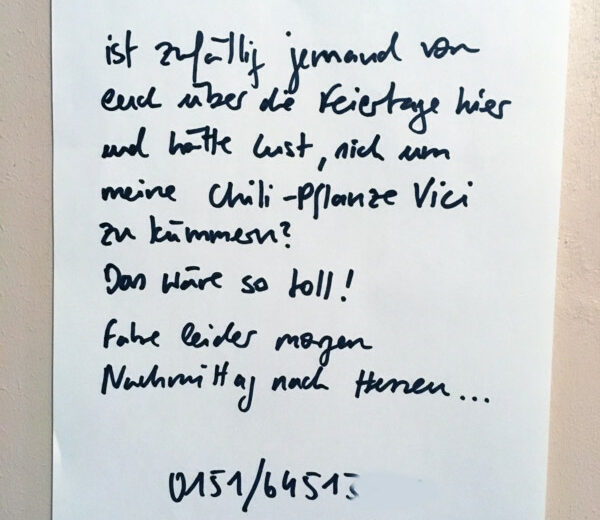 ist zufällig jemand von
euch über die Feiertage hier
und hätte Lust, sich um
meine Chili-Pflanze Vici
zu kümmern?
Das wäre so toll!
Fahre leider morgen
Nachmittag nach Hessen...
0151/64513